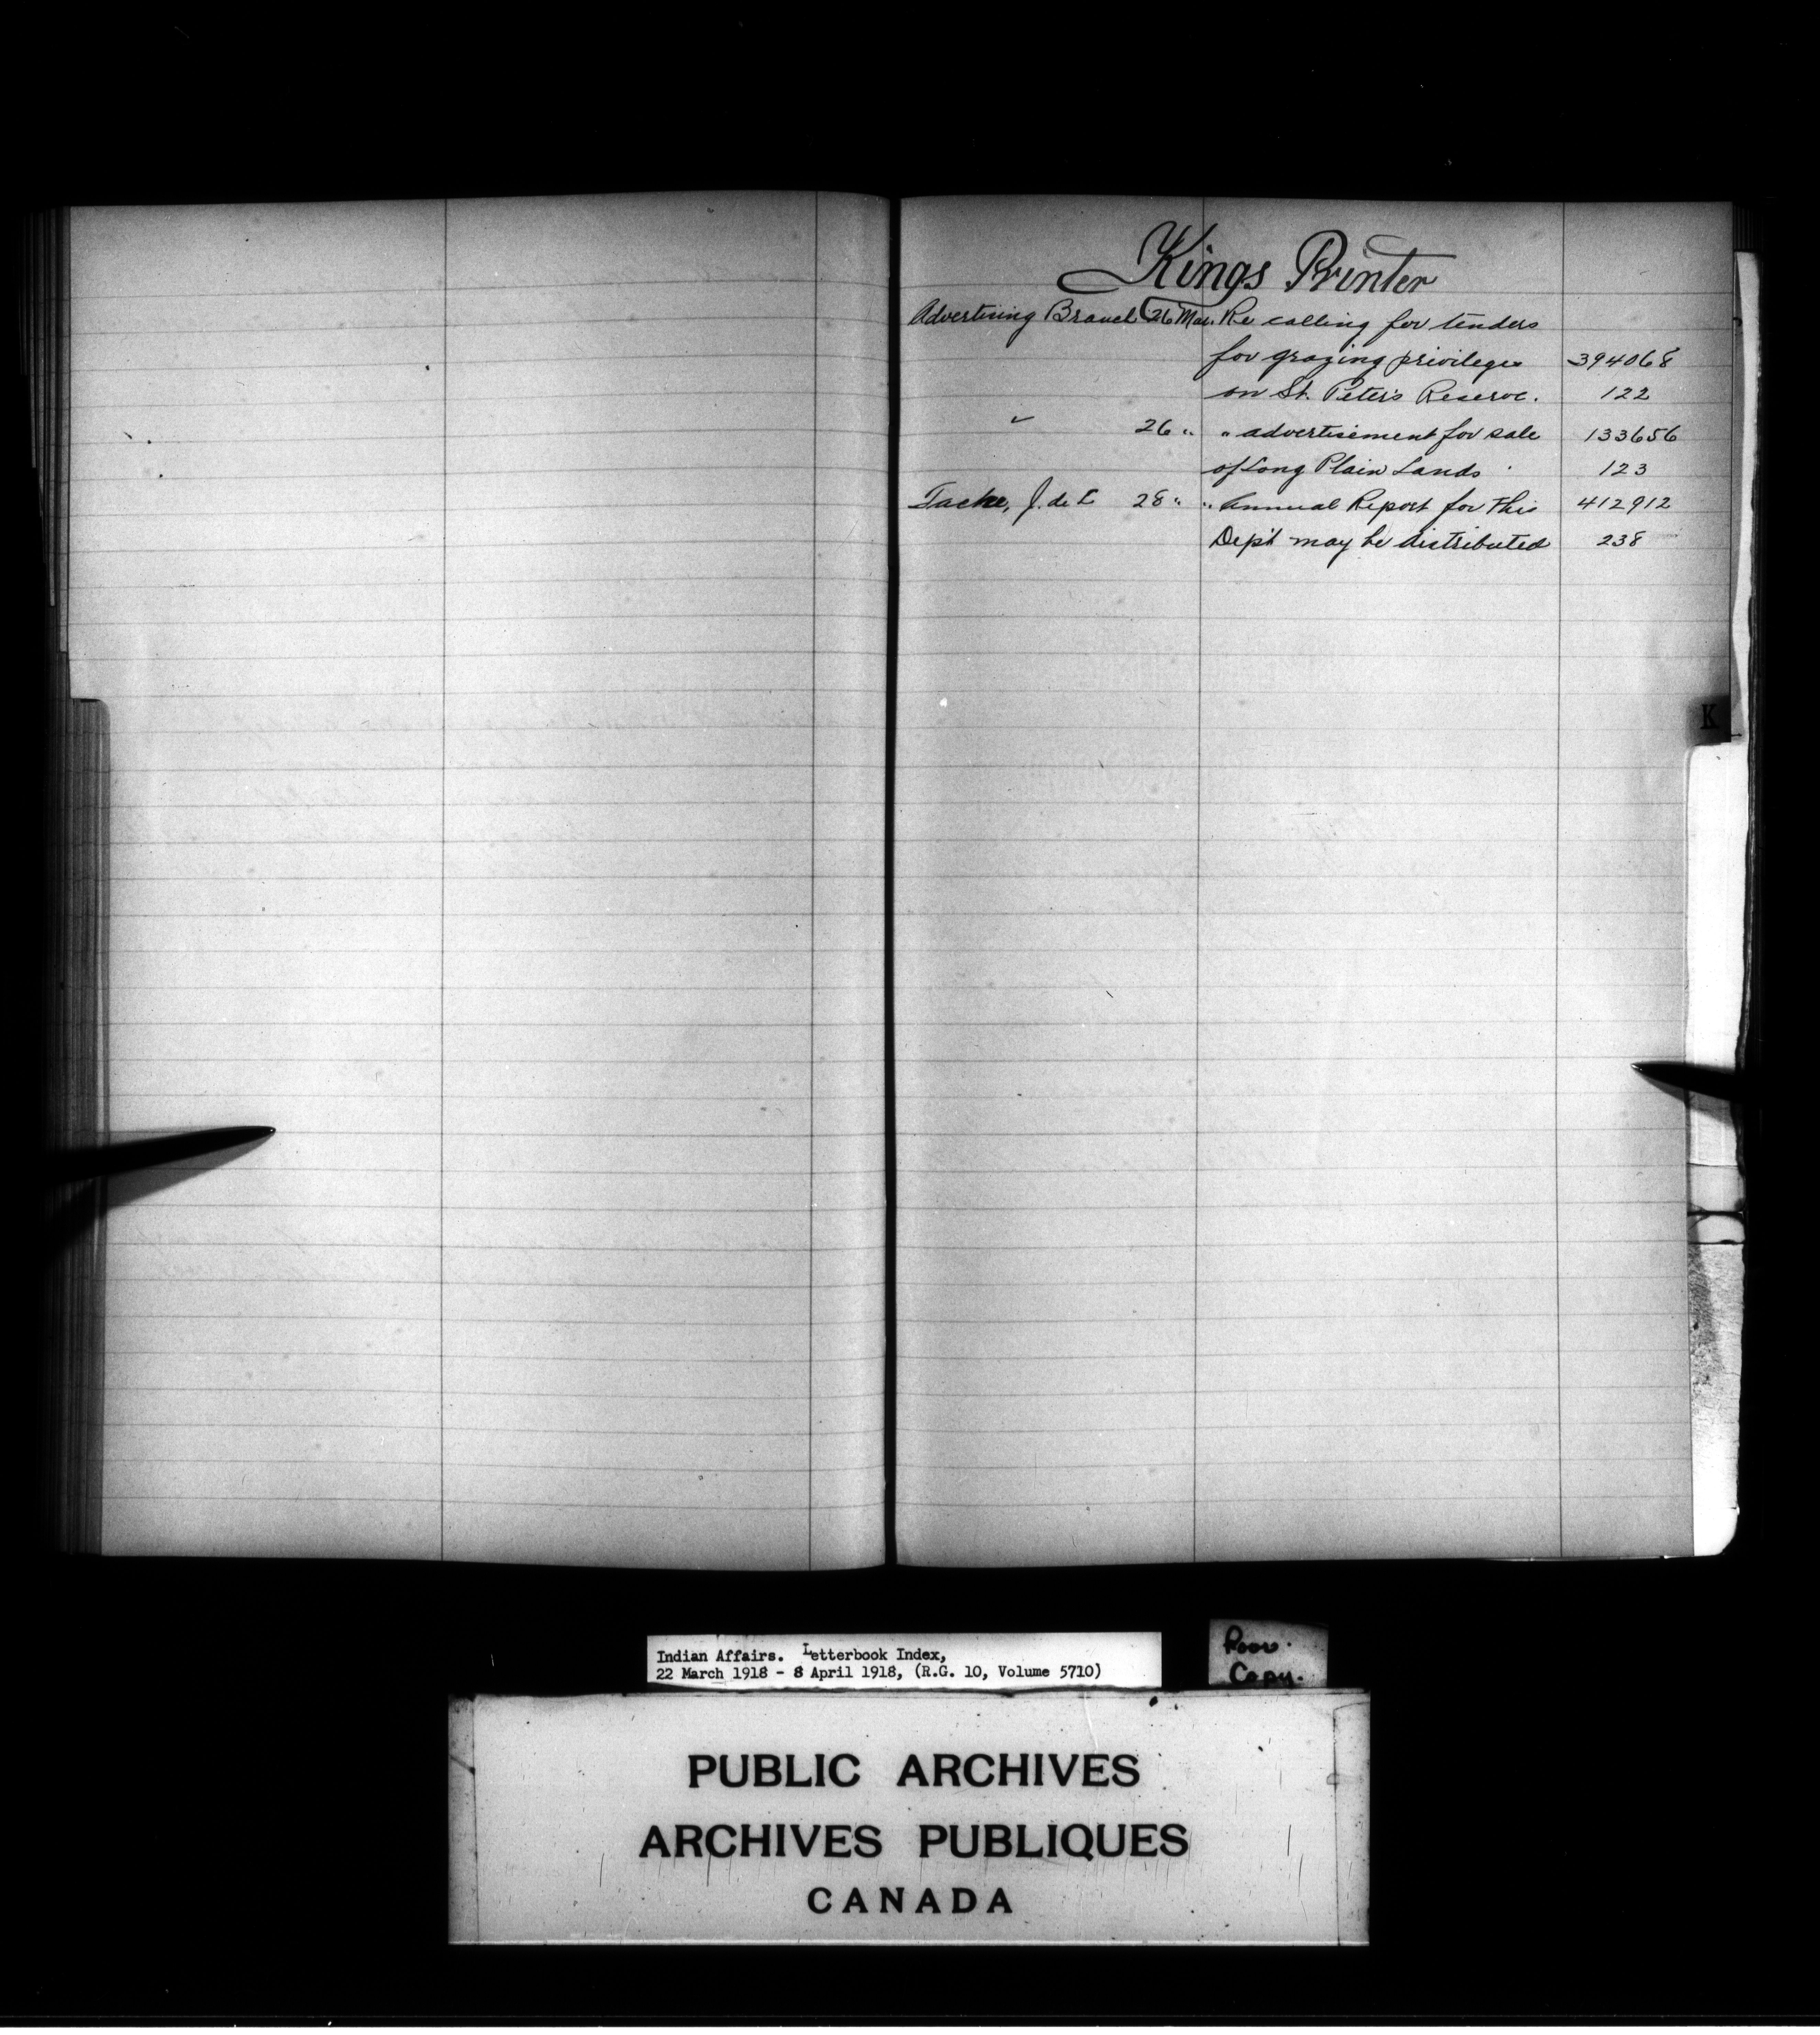 Kings Printer
Advertising Branch 26 Mar. Re calling for tenders
for grazing privileges 394068
on St. Peter's Reserve. 122
" 26 " " advertisement for sale 133656
of Long Plain Lands 123
Tache, J. de L 28 " " Annual Report for this 412912
Dep't may be distributed 238
K
Indian Affairs. Letterbook Index,
22 March 1918 - 8 April 1918, (R.G. 10, Volume 5710)
Poor
Copy.
PUBLIC ARCHIVES
ARCHIVES PUBLIQUES
CANADA